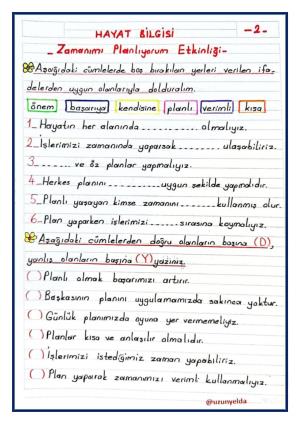 HAYAT BİLGİSİ
-2-
- Zamanımı Planlıyorum Etkinliği-
Aşağıdaki cümlelerde boş bırakılan yerleri verilen ifa-
delerden uygun olanlarıyla dolduralım.
önem başarıya kendisine planlı verimli kısa
1_Hayatın her alanında ............ olmalıyız.
2_İşlerimizi zamanında yaparsak ........... ulaşabiliriz.
3_ ........... ve öz planlar yapmalıyız.
4_Herkes planını ........... uygun şekilde yapmalıdır.
5_Planlı yaşayan kimse zamanını .......... kullanmış olur.
6_Plan yaparken işlerimizi .......... sırasına koymalıyız.
Aşağıdaki cümlelerden doğru olanların başına (D),
yanlış olanların başına (Y) yazınız.
( ) Planlı olmak başarımızı artırır.
( ) Başkasının planını uygulamamızda sakınca yoktur.
( ) Günlük planımızda oyuna yer vermemeliyiz.
( ) Planlar kısa ve anlaşılır olmalıdır.
( ) İşlerimizi istediğimiz zaman yapabiliriz.
( ) Plan yaparak zamanımızı verimli kullanmalıyız.
@uzunyelda